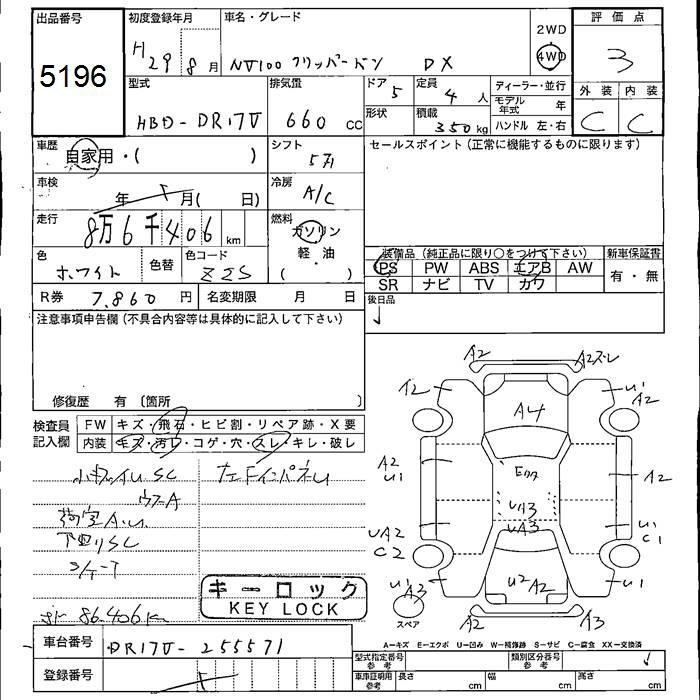 出品番号
5196
初度登録年月
H29 8月
車名・グレード
NV100クリッパーバン DX
2WD
4WD
評価点
3
型式
HBD-DR17V
排気量
660 cc
ドア
5
形状
定員
4人
積載
350kg
ディーラー・並行
モデル年式 年
ハンドル 左・右
外装 内装
C C
車歴
自家用・( )
シフト
5
セールスポイント(正常に機能するものに限ります)
車検
年 月( 日)
冷房
A/C
走行
8万6千406km
燃料
ガソリン
軽・油
( )
色
ホワイト
色替
色コード
Z2S
装備品(純正品に限り○をつけて下さい)
新車保証書
PS PW ABS エアB AW
有・無
SR ナビ TV カワ
R券 7,860円
名変期限 月 日
後日品
注意事項申告欄(不具合内容等は具体的に記入して下さい)
修復歴 有 〔箇所 〕
検査員記入欄
FW キズ・飛石・ヒビ割・リペア跡・X要
内装 キズ・汚れ・コゲ・穴・スレ・キレ・破レ
荷室A.U
下回りSC
86.406km
キーロック
KEY LOCK
A2
A2
A2
A2
A4
A2
U1
A2
UA3
UA3
U1
C1
UA2
C2
U1
A3
U2 A2
U1
スペア
A2
A3
A=キズ E=エクボ U=凹み W=補修跡 S=サビ C=腐食 XX=交換済
車台番号
DR17V-255571
登録番号
型式指定番号
参考
類別区分番号
参考
車庫証明用
参考
長さ cm
幅 cm
高さ cm